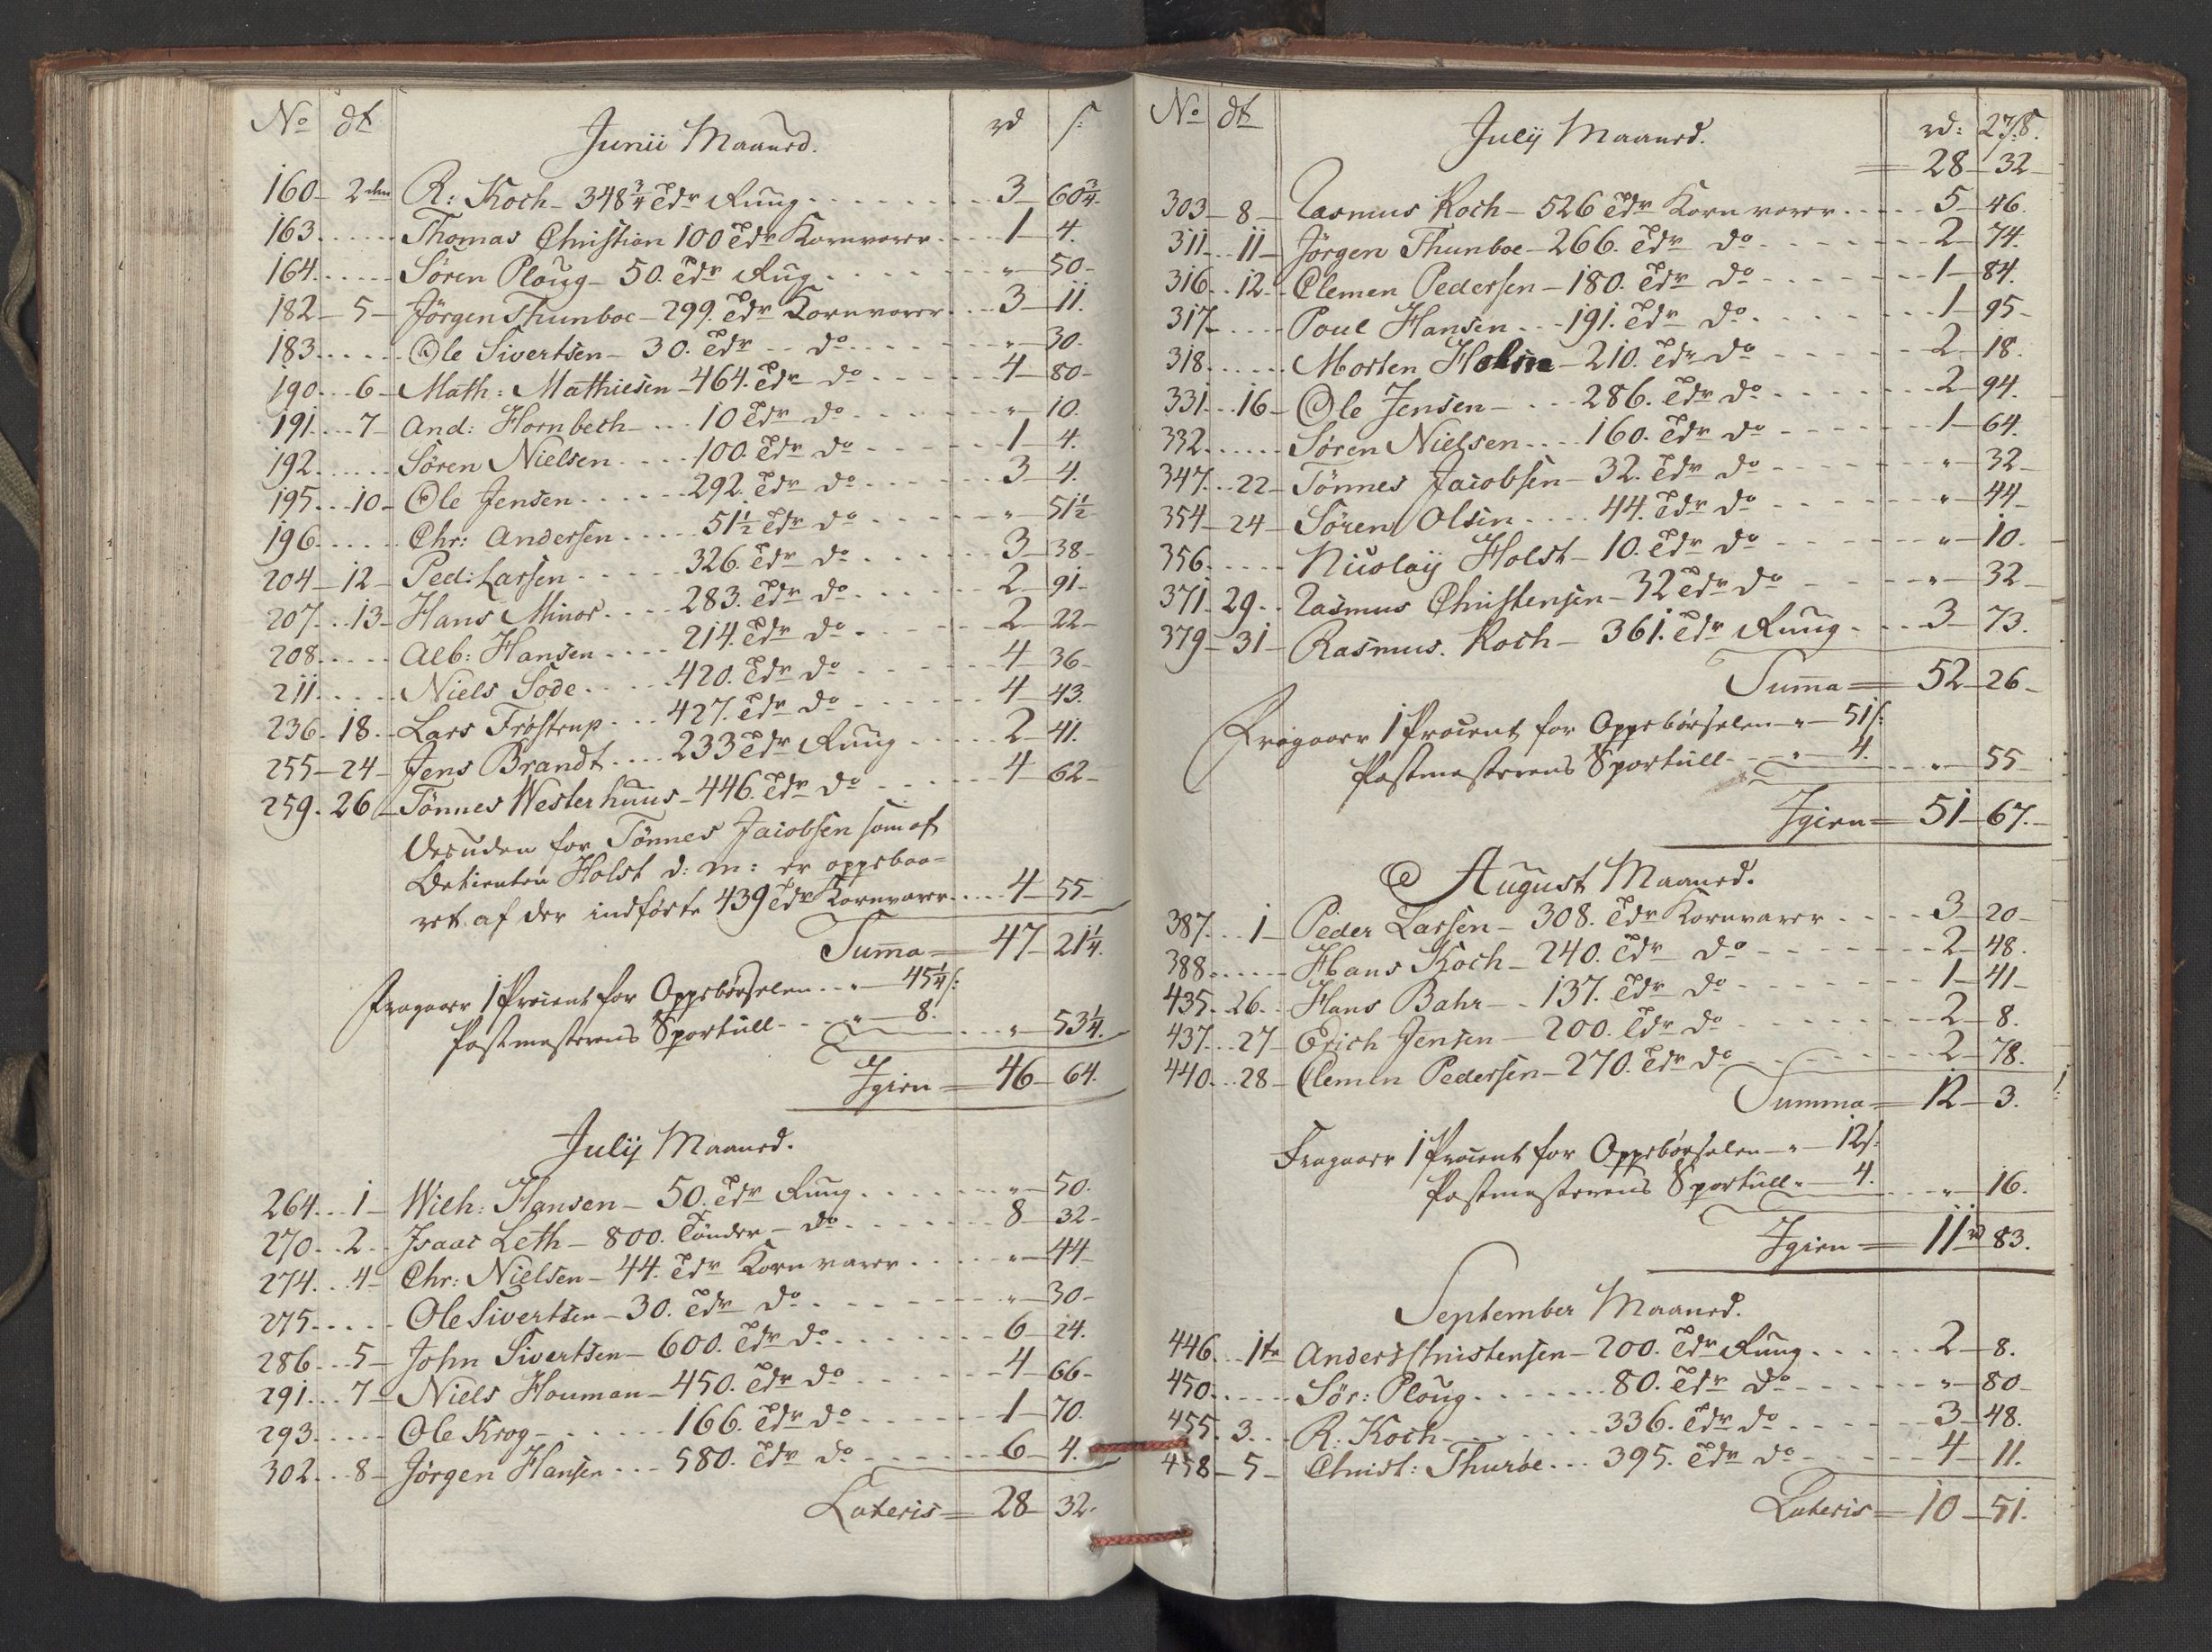 No dt Junii Maaned. rd s:
160 - 2den R: Koch - 348 3/4 Tdr Ruug 3 - 60 3/4.
163 Thomas Christian 100 Tdr Kornvarer 1 - 4.
164 Sören Ploug - 50. Tdr Rug " - 50 -
182 - 5 - Jörgen Thunboe - 299. Tdr Kornvarer 3 - 11.
183 Ole Sivertsen - 30. Tdr do " - 30.
190 6 - Math: Mathiesen - 464. Tdr do 4 - 80 -
191 7 - And: Hornbech - 10 Tdr do " - 10.
192 Sören Nielsen 100. Tdr do 1 - 4.
195 10 - Ole Jensen 292. Tdr do 3 - 4.
196 Chr: Andersen 51 1/2 Tdr do " - 51 1/2
204 - 12 - Ped: Larsen 326. Tdr do 3 - 38 -
207 13 - Hans Minor 283. Tdr do 2 - 91 -
208 Alb: Hansen 214. Tdr do 2 - 22 -
211 Niels Sode 420. Tdr do 4 - 36 -
236 - 18 Lars Fröstrup 427. Tdr do 4 - 43.
255 - 24 - Jens Brandt 233 Tdr Ruug 2 - 41.
259. 26 - Tönnes Westerhuus - 446. Tdr do 4 - 62 -
Desuden for Tönnes Jacobsen som af
Betienten Holst d: m: er oppebaa=
ret af der indförte 439 Tdr Kornvarer 4 - 55 -
Summa = 47 - 21 1/4.
Fragaaer 1 Procent for Oppebörselen " - 45 1/4 s:
Postmesterens Sportull " - 8. " - 53 1/4.
Igien = 46 - 64.
Julij Maaned.
264 1 - Wilh: Hansen - 50. Tdr Ruug " - 50.
270 2 Isaac Leth - 800. Tönder - do 8 - 32 -
274 4 - Chr: Nielsen - 44. Tdr Kornvarer " - 44 -
275 Ole Sivertsen - 30. Tdr do " - 30 -
286 5 - John Sivertsen - 600. Tdr do 6 - 24.
291 7 - Niels Houman - 450. Tdr do 4 - 66 -
293 Ole Krog - 166. Tdr do 1 - 70.
302 8 - Jörgen Hansen 580. Tdr do 6 - 4.
Lateris = 28 - 32.
No dt Julij Maaned. rd: s. 278.
= 28 - 32 -
303 - 8 - Rasmus Koch - 526 Tdr Kornvarer 5 - 46.
311 11 - Jörgen Thunboe - 266. Tdr do 2 - 74.
316 12 - Clemen Pedersen - 180. Tdr do 1 - 84.
317 Poul Hansen - 191. Tdr do 1 - 95 -
318 Morten Holm - 210. Tdr do 2 - 18.
331 16 - Ole Jensen - 286. Tdr do 2 - 94.
332 Sören Nielsen 160. Tdr do 1 - 64.
347 22 - Tönnes Jacobsen - 32. Tdr do " - 32 -
354 - 24 - Sören Olsen 44. Tdr do " - 44 -
356 Nicolaÿ Holst - 10. Tdr do " - 10.
371 - 29 Rasmus Christensen - 32 Tdr do " - 32 -
379 - 31 - Rasmus Koch - 361. Tdr Ruug 3 - 73.
Summa = 52 - 26 -
Fragaaer 1 Procent for Oppebörselen - " - 51 s:
Postmesterens Sportull " - 4. " - 55
Igien = 51 - 67. -
August Maaned.
387 1 - Peder Larsen - 308. Tdr Kornvarer 3 - 20 -
388 Hans Koch - 240. Tdr do 2 - 48.
435 - 26 Hans Bahr - 137. Tdr do 1 - 41 -
437 27 - Erich Jensen - 200. Tdr do 2 - 8.
440 28 - Clemen Pedersen - 270. Tdr do 2 - 78.
Summa = 12 - 3.
Fragaaer 1 Procent for Oppebörselen - " - 12 s:
Postmesterens Sportull " - 4. " - 16.
Igien = 11 rd 83.
September Maaned.
446 1te Anders Christensen - 200. Tdr Ruug 2 - 8.
450 Sör: Ploug 80. Tdr do " - 80 -
455 3 R: Koch 336. Tdr do 3 - 48.
458 - 5 - Christ: Thuröe 395. Tdr do 4 - 11.
Lateris = 10 - 51.